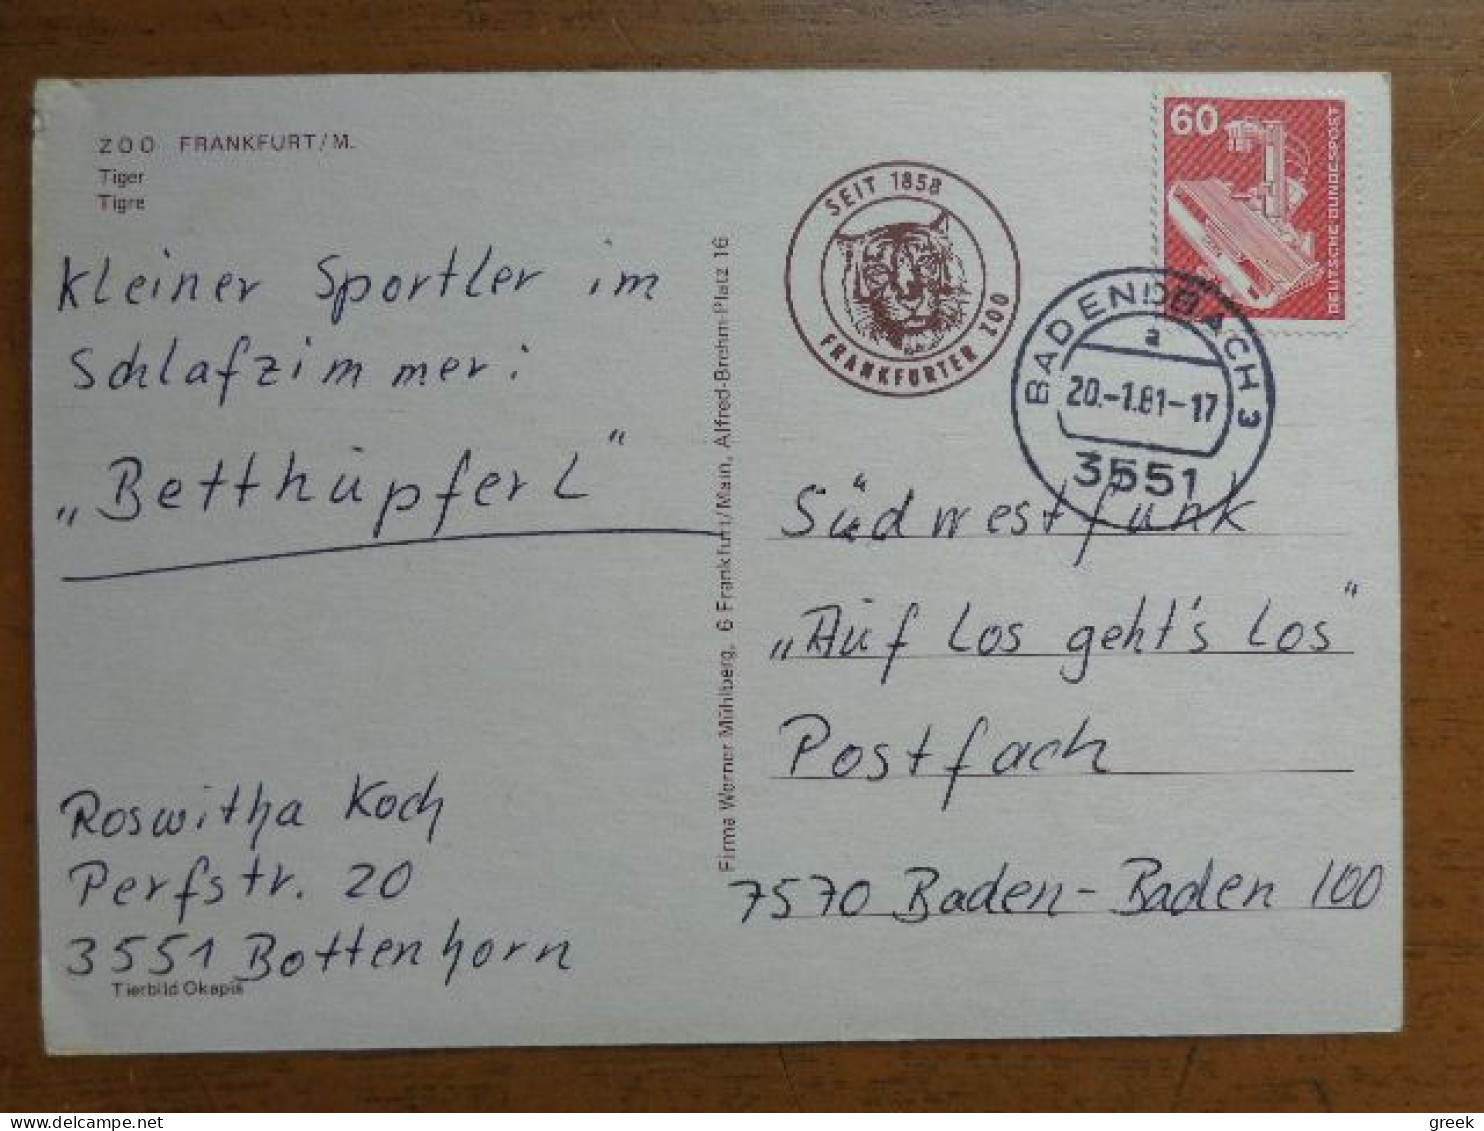 ZOO FRANKFURT/M.
Tiger
Tigre
Kleiner Sportler im
Schlafzimmer:
„Betthüpferl"
Roswitha Koch
Perfstr. 20
3551 Bottenhorn
Tierbild Okapia
Firma Werner Mühlberg, 6 Frankfurt/Main, Alfred-Brehm-Platz 16
SEIT 1858
FRANKFURTER ZOO
60
DEUTSCHE BUNDESPOST
BAD ENDBACH 3
a
20.-1.81-17
3551
Südwestfunk
„Auf Los geht's Los"
Postfach
7570 Baden-Baden 100
greek